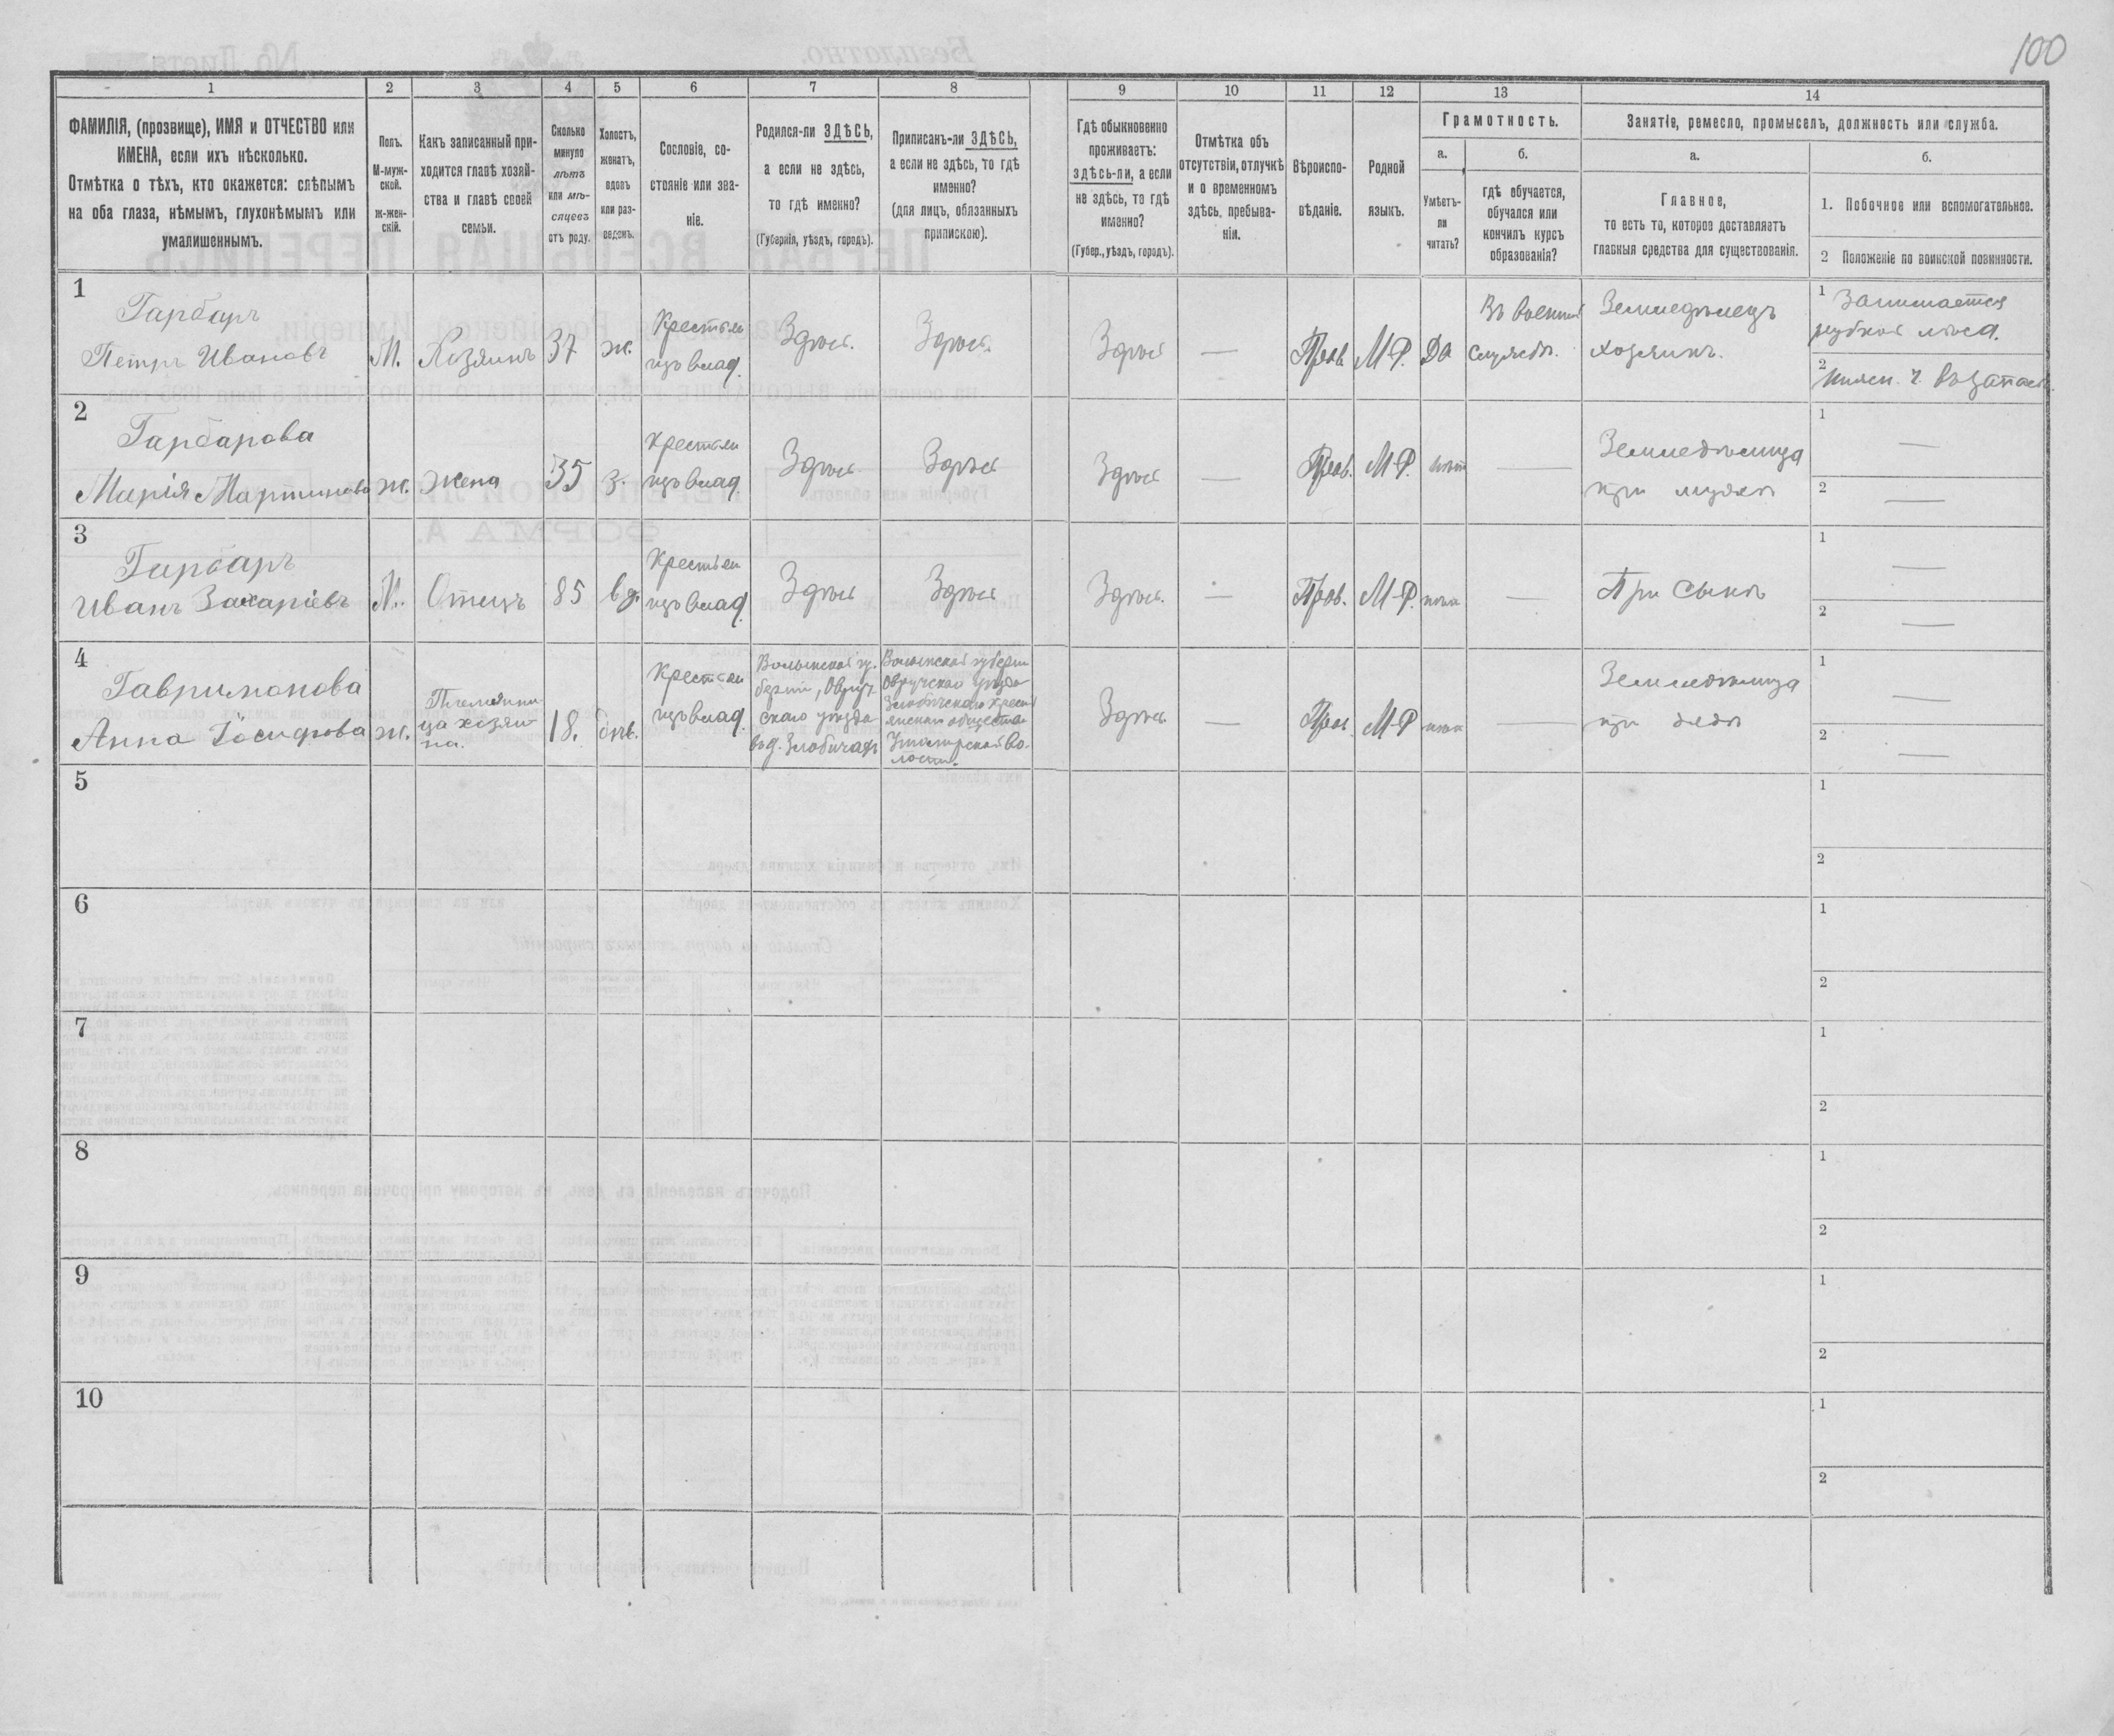 100
1 2 3 4 5 6 7 8 9 10 11 12 13 14
ФАМИЛІЯ, (прозвище), ИМЯ и ОТЧЕСТВО или
ИМЕНА, если ихъ нѣсколько.
Отмѣтка о тѣхъ, кто окажется: слѣпымъ
на оба глаза, нѣмымъ, глухонѣмымъ или
умалишеннымъ.
Полъ.
М-муж-
ской.
ж-жен-
скій.
Какъ записанный при-
ходится главѣ хозяй-
ства и главѣ своей
семьи.
Сколько
минуло
лѣтъ
или мѣ-
сяцевъ
отъ роду.
Холостъ,
женатъ,
вдовъ
или раз-
веденъ.
Сословіе, со-
стояніе или зва-
ніе.
Родился-ли ЗДѢСЬ,
а если не здѣсь,
то гдѣ именно?
(Губернія, уѣздъ, городъ).
Приписанъ-ли ЗДѢСЬ,
а если не здѣсь, то гдѣ
именно?
(для лицъ, обязанныхъ
припискою).
Гдѣ обыкновенно
проживаетъ:
здѣсь-ли, а если
не здѣсь, то гдѣ
именно?
(Губер., уѣздъ, городъ).
Отмѣтка объ
отсутствіи, отлучкѣ
и о временномъ
здѣсь пребыва-
ніи.
Вѣроиспо-
вѣданіе.
Родной
языкъ.
Грамотность.
а.
Умѣетъ-
ли
читать?
б.
гдѣ обучается,
обучался или
кончилъ курсъ
образованія?
Занятіе, ремесло, промыселъ, должность или служба.
а.
Главное,
то есть то, которое доставляетъ
главныя средства для существованія.
б.
1. Побочное или вспомогательное.
2 Положеніе по воинской повинности.
1
Гарбаръ
Петръ Ивановъ
М.
Хозяинъ
37
ж.
Крестьян
изъ влад.
Здѣсь.
Здѣсь.
Здѣсь
—
Прав.
М-Р.
Да
Въ военной
службѣ.
Земледѣлецъ
хозяинъ.
1 Занимается
рубкою лѣса.
2 Нижн. ч. въ запасѣ
2
Гарбарова
Марія Мартинова
ж.
жена
35
з.
Крестьян
изъ влад.
Здѣсь
Здѣсь
Здѣсь
—
Прав.
М-Р.
нѣтъ
—
Земледѣлица
при мужѣ
1 —
2 —
3
Гарбаръ
Иванъ Захаріевъ
М.
Отецъ
85
вд.
Крестьян
изъ влад.
Здѣсь
Здѣсь
Здѣсь.
—
Прав.
М-Р.
—
При сынѣ
1 —
2 —
4
Гавримонова
Анна Іосифова
ж.
Племянни-
ца хозяи-
на.
18.
дѣв.
Крестьян
изъ влад.
Волынской гу-
берніи, Овруч-
скаго уѣзда
въ д. Злобичахъ
Волынской губерн
Овручскаго уѣзда
Злобичскаго крест
янскаго общества
волости.
Здѣсь
—
Прав.
М-Р
—
Земледѣлица
при дядѣ
1 —
2 —
5
1
2
6
1
2
7
1
2
8
1
2
9
1
2
10
1
2